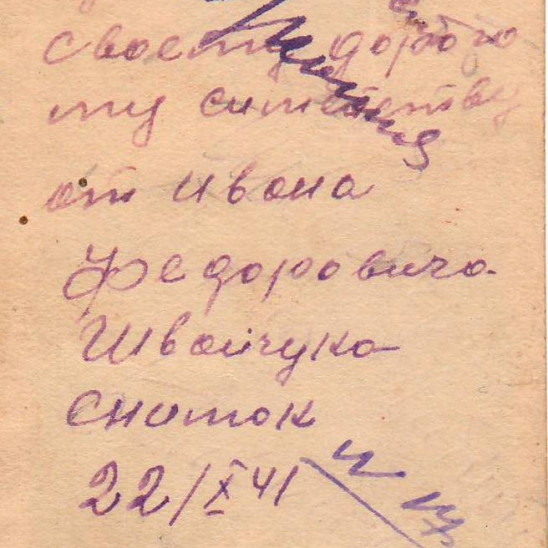 своему дорого
му симейству
от Ивона
Федоровича
Швайчука
сниток
22/X 41